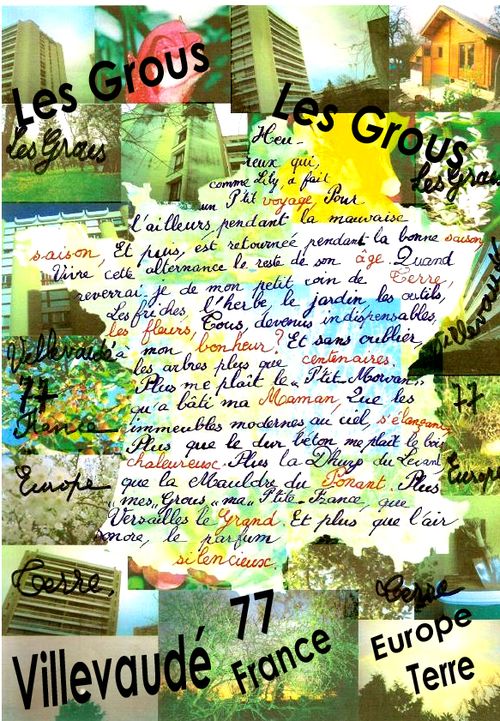 Les Grous
Les Grous
Les Grous
Les Grous
Heu-
reux qui,
comme Lily, a fait
un P'tit voyage, Pour
l'ailleurs, pendant la mauvaise
saison, Et puis, est retournée pendant la bonne saison,
Vivre cette alternance le reste de son âge. Quand
reverrai-je de mon petit coin de Terre,
Les friches, l'herbe, le jardin, les outils,
les fleurs, Tous, devenus indispensables
à mon bonheur? Et sans oublier,
les arbres plus que centenaires.
Plus me plait le "P'tit-Morvan",
qu'a bâti ma Maman, Que les
immeubles modernes au ciel, s'élançant,
Plus que le dur béton me plaît le bois
chaleureux. Plus la Dhuys du Levant
que la Mauldre du Ponant. Plus
"mes" Grous, "ma" P'tite-France, que
Versailles le Grand. Et plus que l'air
sonore, le parfum
silencieux.
Villevaudé
77
France
Europe
Terre,
Villevaudé
77
Europe
Terre
Villevaudé
77
France
Europe
Terre